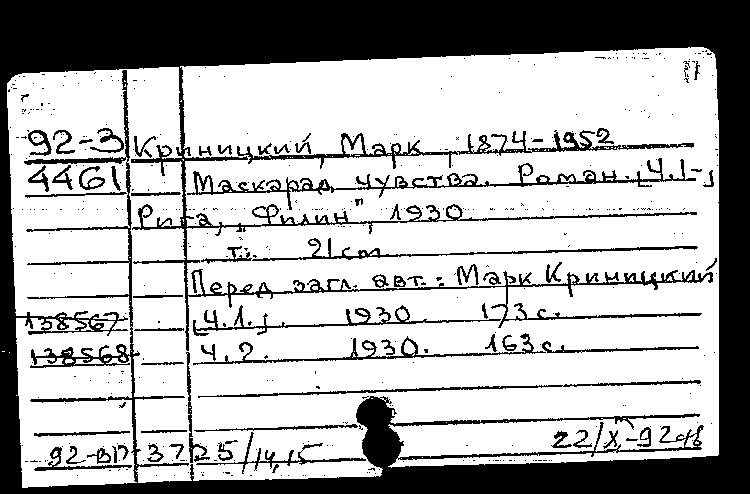 92-3 Криницкий, Марк, 1874-1952
4461 Маскарад чувства. Роман. [Ч.1-]
Рига, "Филин", 1930.
т. 21 cm
Перед загл. авт.: Марк Криницкий
138567 [Ч.1.]. 1930. 173 с.
138568 Ч.2. 1930. 163 с.
92-ВП-3725/14,15 22/X-92